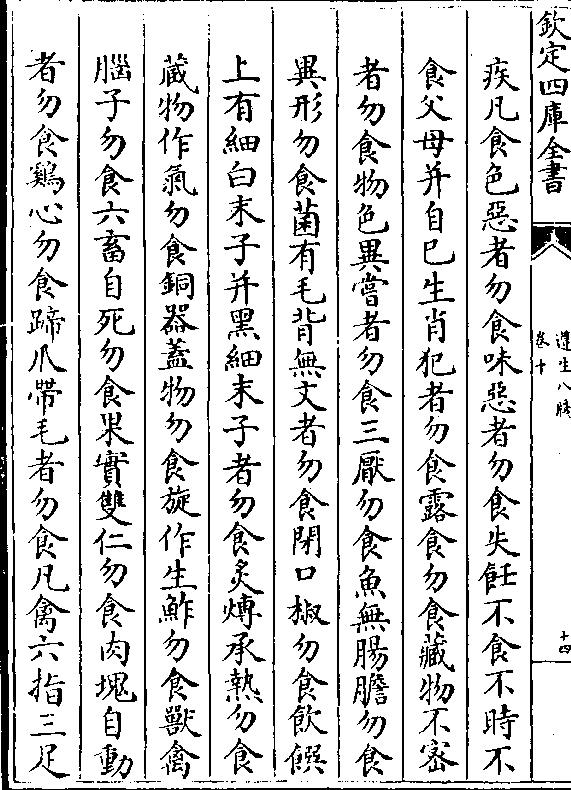 欽定四庫全書
遵生八牋
卷十
十四
疾凡食色惡者勿食味惡者勿食失飪不食不時不
食父母并自己生肖犯者勿食露食勿食藏物不宻
者勿食物色異嘗者勿食三厭勿食魚無腸膽勿食
異形勿食菌有毛背無文者勿食閉口椒勿食飲饌
上有細白末子并黑細末子者勿食炙煿承熱勿食
藏物作氣勿食銅器蓋物勿食旋作生鮓勿食獸禽
腦子勿食六畜自死勿食果實雙仁勿食肉塊自動
者勿食鷄心勿食蹄爪帶毛者勿食凡禽六指三足